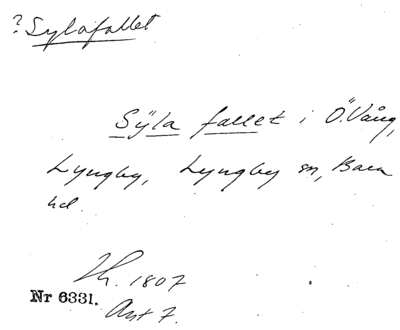 ? Sylafallet
Sÿla fallet i Ö. Vång,
Lyngby, Lyngby sn, Bara
hd.
Th. 1807
Nr 6331.
Akt 7.